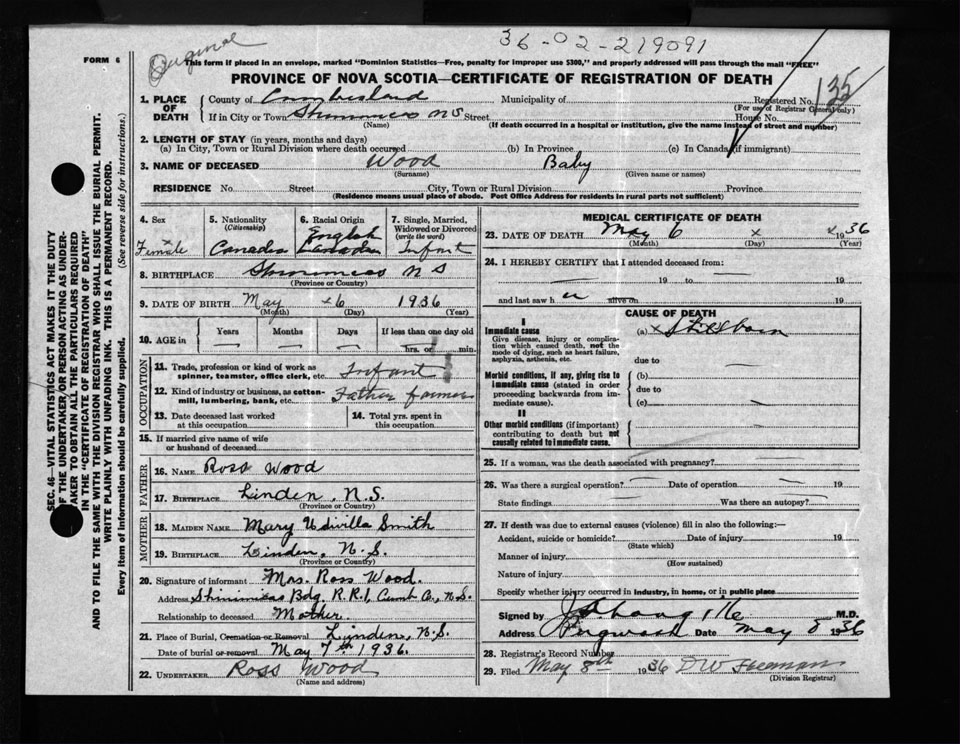 Original
36-02-219091
FORM 6
This form if placed in an envelope, marked "Dominion Statistics—Free, penalty for improper use $300," and properly addressed will pass through the mail "FREE"
PROVINCE OF NOVA SCOTIA—CERTIFICATE OF REGISTRATION OF DEATH
SEC. 46—VITAL STATISTICS ACT MAKES IT THE DUTY
OF THE UNDERTAKER/OR PERSON ACTING AS UNDER-
TAKER TO OBTAIN ALL THE PARTICULARS REQUIRED
IN THE "CERTIFICATE OF REGISTRATION OF DEATH"
AND TO FILE THE SAME WITH THE DIVISION REGISTRAR WHO SHALL ISSUE THE BURIAL PERMIT.
WRITE PLAINLY WITH UNFADING INK. THIS IS A PERMANENT RECORD.
Every item of Information should be carefully supplied. (See reverse side for instructions.)
1. PLACE OF DEATH County of Cumberland Municipality of Registered No. 135
(For use of Registrar General only)
If in City or Town Shinimicas N S Street House No.
(Name) (If death occurred in a hospital or institution, give the name instead of street and number)
2. LENGTH OF STAY (in years, months and days)
(a) In City, Town or Rural Division where death occurred (b) In Province (c) In Canada (if immigrant)
3. NAME OF DECEASED Wood Baby
(Surname) (Given name or names)
RESIDENCE No. Street City, Town or Rural Division Province
(Residence means usual place of abode. Post Office Address for residents in rural parts not sufficient)
4. Sex 5. Nationality 6. Racial Origin 7. Single, Married,
(Citizenship) English Widowed or Divorced
(write the word)
Female Canada Canadian Infant
8. BIRTHPLACE Shinimicas N S
(Province or Country)
9. DATE OF BIRTH May 6 1936
(Month) (Day) (Year)
10. AGE in Years Months Days If less than one day old
— — — hrs. or min.
OCCUPATION
11. Trade, profession or kind of work as
spinner, teamster, office clerk, etc. Infant
12. Kind of industry or business, as cotten-
mill, lumbering, bank, etc. Father farmer
13. Date deceased last worked 14. Total yrs. spent in
at this occupation this occupation
15. If married give name of wife
or husband of deceased
FATHER
16. NAME Ross Wood
17. BIRTHPLACE Linden, N.S.
(Province or Country)
MOTHER
18. MAIDEN NAME Mary Udivilla Smith
19. BIRTHPLACE Linden, N.S.
(Province or Country)
20. Signature of informant Mrs. Ross Wood.
Address Shinimicas Bdg. R.R.1, Cumb Co., N.S.
Relationship to deceased Mother
21. Place of Burial, Cremation or Removal Linden, N.S.
Date of burial or removal May 7th 1936.
22. UNDERTAKER Ross Wood
(Name and address)
MEDICAL CERTIFICATE OF DEATH
23. DATE OF DEATH May 6 x x 1936
(Month) (Day) (Year)
24. I HEREBY CERTIFY that I attended deceased from:
19 to 19
and last saw h alive on 19
CAUSE OF DEATH
I
Immediate cause (a) x Stillborn
Give disease, injury or complica-
tion which caused death, not the
mode of dying, such as heart failure,
asphyxia, asthenia, etc.
due to
Morbid conditions, if any, giving rise to (b)
immediate cause (stated in order
proceeding backwards from im- due to
mediate cause). (c)
II
Other morbid conditions (if important)
contributing to death but not
causally related to immediate cause.
25. If a woman, was the death associated with pregnancy?
26. Was there a surgical operation? Date of operation 19
State findings Was there an autopsy?
27. If death was due to external causes (violence) fill in also the following:—
Accident, suicide or homicide? Date of injury 19
(State which)
Manner of injury
(How sustained)
Nature of injury
Specify whether injury occurred in industry, in home, or in public place
Signed by M.D.
Address Pugwash Date May 8 1936
28. Registrar's Record Number
29. Filed May 8th 1936 DW Freeman
(Division Registrar)